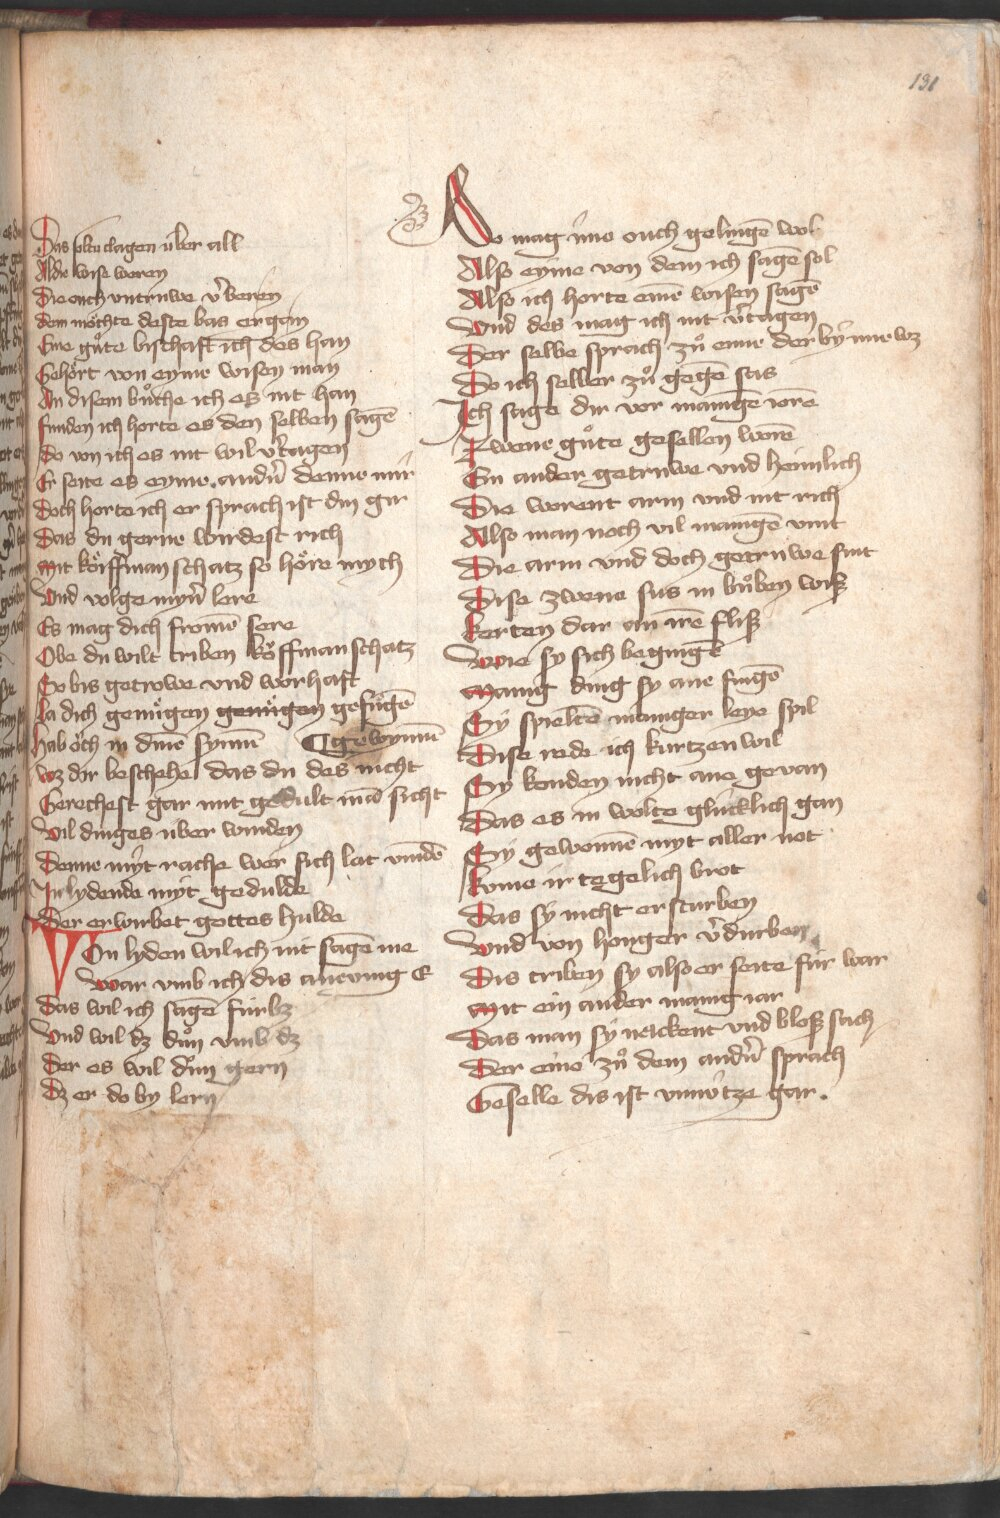 131
Das sollen clagen uber all
Alde wise weren
Die ouch vntruwe v̉beren
dem möchte deste bas ergan
Eine gůte bischaft ich des han
Gehört von eyme wisen man
An disem bůche ich es nit han
funden ich horte es den selben sagē
Do von ich es nit wil v̉tagen
Er seite es eyme andn̉ denne mir
Doch horte ich er sprach ist din gir
Das du gerne wirdest rich
mit köiffman schatz so höre mych
Vnd volge myn̉ lere
Es mag dich fromē sere
Obe du wilt triben köffman schatz
So bis getrowe und worhaft
la dich genügen genügen gefügē
hab öch in dinē synnē gewynnū
wz dar beschehe das du des nicht
Gerechest gar mit gedult mā sicht
Vil dinges über winden
Denne myt rache wer sich lat vindē
In lydende myt gedulde
Der erwirbet gottes hulde
Von lyden wil ich nit sagē me
war vmb ich dis anevnig E
Das wil ich sagē fürbz
Vnd wil dz dün vmb dz
Der es wil dün gern
Dz er do by lern
So mag ime ouch gelingē wol
Also eyme von dem ich sagē sol
Also ich horte einē wisen sagē
Vnd des mag ich nit v̉tagen
Der selbe sprach zů eime der by ime wz
Do ich selber zů gegē sas
Ich sage dir vor manigē iorē
Zwene gůte gesellen worē
Ein ander getruwe vnd heimlich
Die worent arm vnd nit rich
Also man noch vil manigē vint
Die arm vnd doch getruwe sint
Dise zwene sus in bůben wiß
kerten dar an irē fliß
Wie sy sich begingē
Manig ding sy ane fingē
Sy spieltē maniger leye spil
Dise rede ich kurtzen wil
Sy konden nicht ane gevan
Das es in wolte glücklich gan
Sy gewonnē myt aller not
kome ir tegelich brot
Das sy nicht ersturben
Vnd von honger v̉durben
Dis triben sy also er seite für war
Mit ein ander manig iar
Das man sy nackent vnd bloß sach
Der eine zů dem andn̉ sprach
Geselle dis ist vnnütze gar.